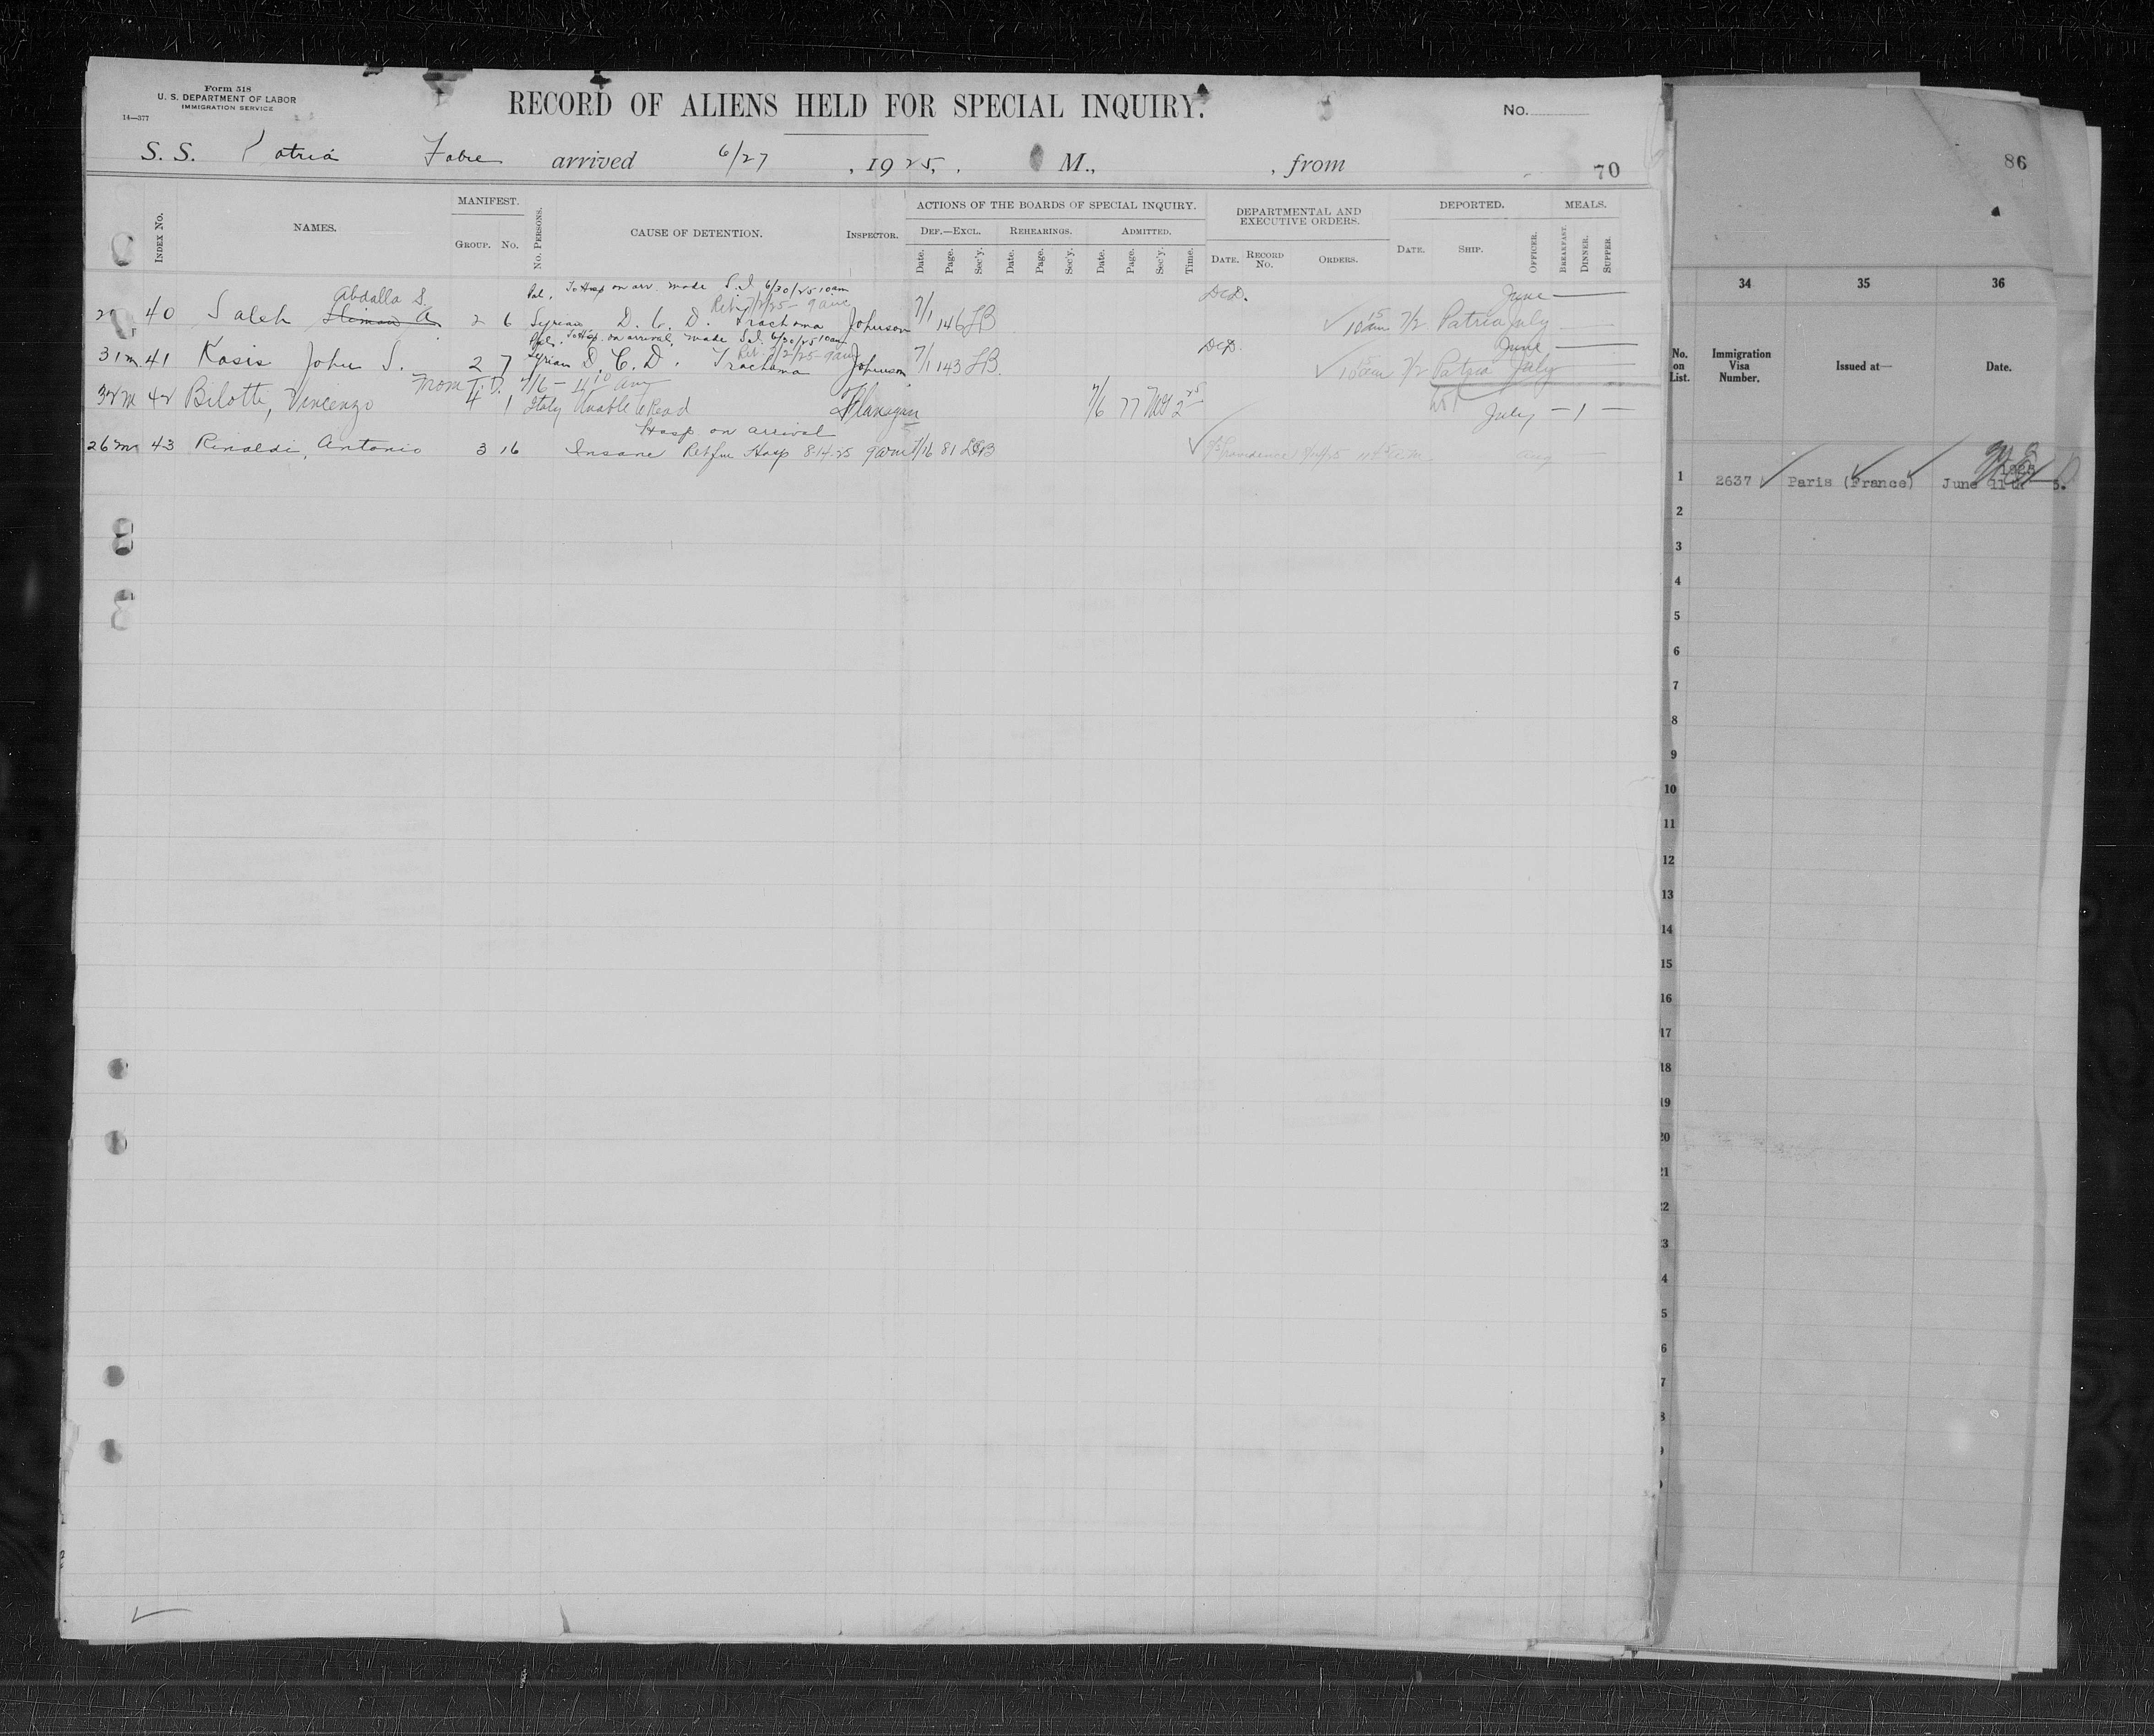 Form 518
U. S. DEPARTMENT OF LABOR
IMMIGRATION SERVICE
14—377
RECORD OF ALIENS HELD FOR SPECIAL INQUIRY.
No.
S. S. Patria Fabre arrived 6/27, 1925, M., from
70
INDEX No.
NAMES.
MANIFEST.
GROUP. No.
No. PERSONS.
CAUSE OF DETENTION.
INSPECTOR.
ACTIONS OF THE BOARDS OF SPECIAL INQUIRY.
DEF.—EXCL. REHEARINGS. ADMITTED.
Date. Page. Sec'y. Date. Page. Sec'y. Date. Page. Sec'y. Time.
DEPARTMENTAL AND
EXECUTIVE ORDERS.
DATE. RECORD No. ORDERS.
DEPORTED.
DATE. SHIP. OFFICER.
MEALS.
BREAKFAST. DINNER. SUPPER.
Pal. To Hosp on arr. made S.I. 6/30/25 10am
Abdalla S. Ret 7/2/25 - 9am DCD. June
40 Saleh A. 2 6 Syrian D. C. D. Trachoma Johnson 7/1 146 LB 10 15 am 7/2 Patria July
Pal. To Hosp. on arrival, made S.I. 6/30/25 10am
Ret. 7/2/25 - 9am DCD. June
31m. 41 Kasis John S. 2 7 Syrian D. C. D. Trachoma Johnson 7/1 143 LB. 10 15 am 7/2 Patria July
From T.D. 7/6 - 11 10 am
32m 42 Bilotti, Vincenzo 4 1 Italy Unable to Read Flanagan 7/6 77 2 25 July — 1 —
Hosp on arrival
26m 43 Rinaldi, Antonio 3 16 Insane Ret fm Hosp 8-14-25 9am 7/16 81 LGB Providence Aug
86
34 35 36
No. on List.
Immigration Visa Number.
Issued at—
Date.
1 2637 Paris (France) June 11
1925
2
3
4
5
6
7
8
9
10
11
12
13
14
15
16
17
18
19
20
21
22
3
4
5
6
7
8
9